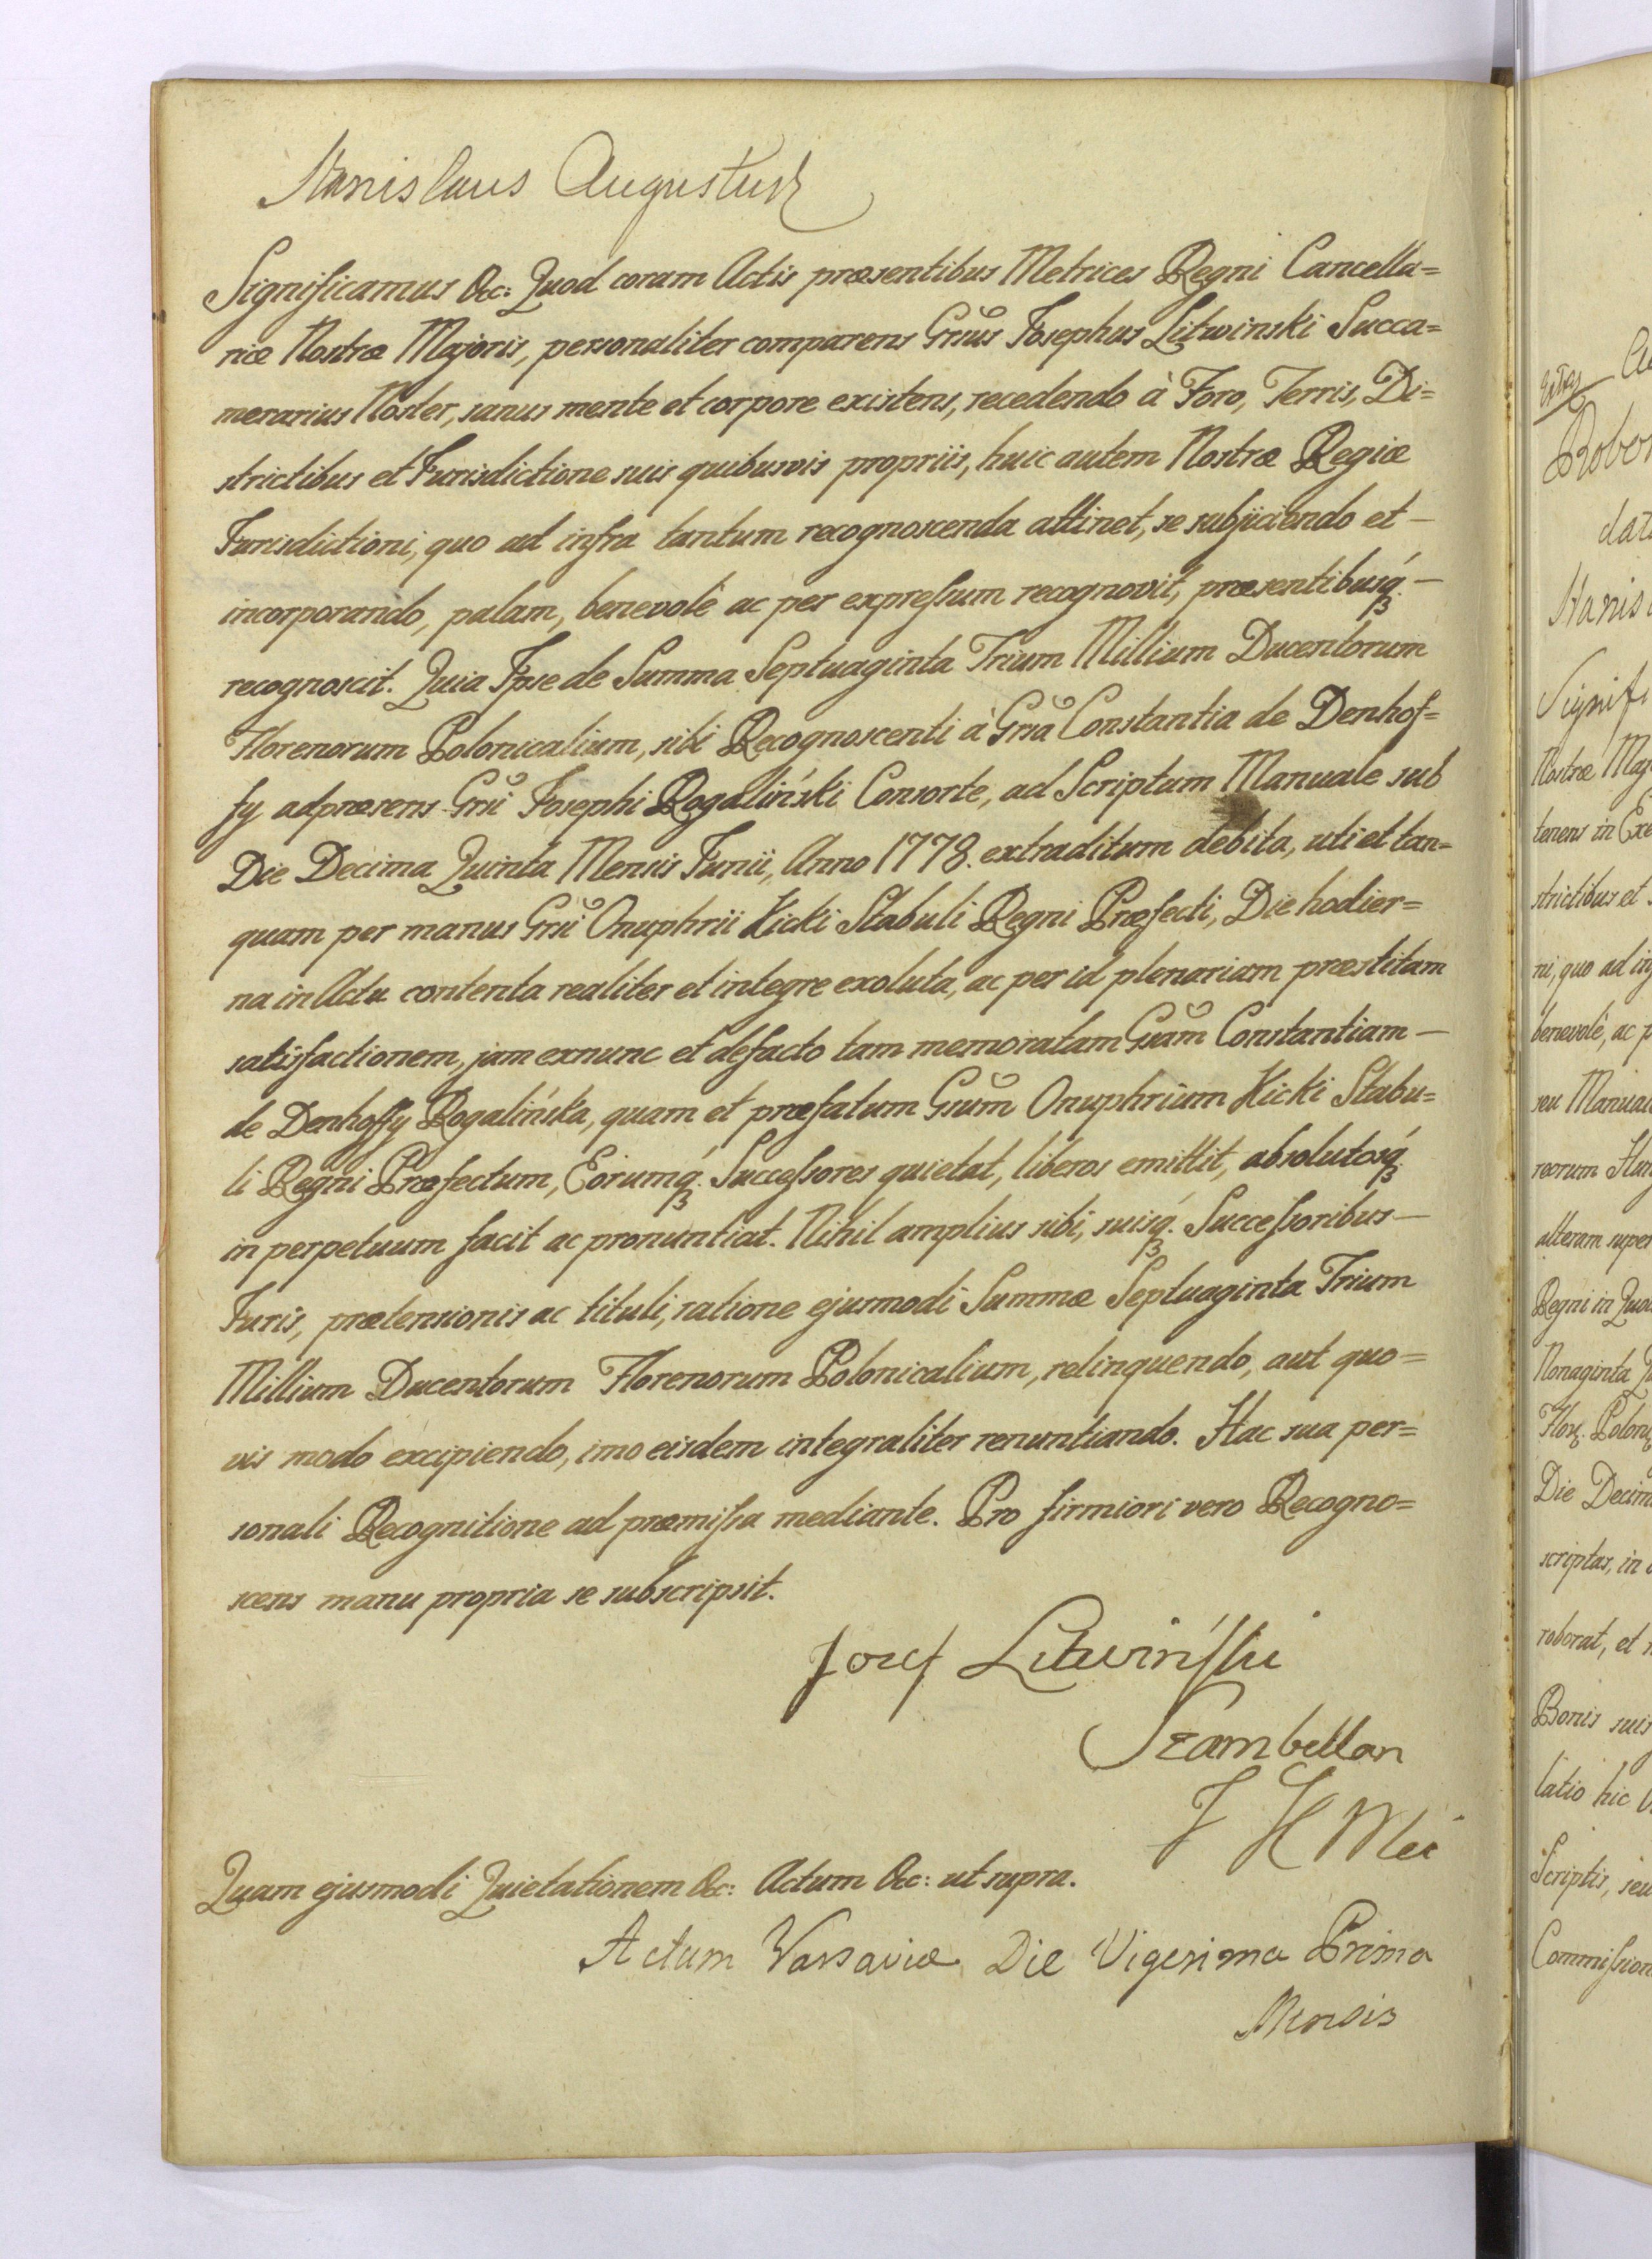 Stanislaus Augustus
Significamus &c: Quod coram Actis præsentibus Metrices Regni Cancella=
riæ Nostræ Majoris, personaliter comparens Grsus Josephus Litwinski Succa=
merarius Noster, sanus mente et corpore existens, recedendo à Foro, Terris, Di=
strictibus et Jurisdictione suis quibusvis propriis, huic autem Nostræ Regiæ
Jurisdictioni, quo ad infra tantum recognoscenda attinet, se subjiciendo et —
incorporando, palam, benevolè ac per expressum recognovit, præsentibusq́ꝫ —
recognoscit. Quia Ipse de Summa Septuaginta Trium Millium Ducentorum
Florenorum Polonicalium, sibi Recognoscenti à Grsa Constantia de Denhof=
fy adpræsens Grsi Josephi Rogaliński Consorte, ad Scriptum Manuale sub
Die Decima Quinta Mensis Junii, Anno 1778. extraditum debita, uti et tan=
quam per manus Grsi Onuphrii Kicki Stabuli Regni Præfecti, Die hodier=
na in Actu contenta realiter et integre exoluta, ac per id plenariam præstitam
satisfactionem, jam exnunc et defacto tam memoratam Gsam Constantiam —
de Denhoffy Rogalińska, quam et præfatum Gsum Onuphrium Kicki Stabu=
li Regni Præfectum, Eorumq́ꝫ Successores quietat, liberos emittit, absolutosq́ꝫ
in perpetuum facit ac pronuntiat. Nihil amplius sibi, suisq́ꝫ Successoribus —
Juris, prætensionis ac tituli, ratione ejusmodi Summæ Septuaginta Trium
Millium Ducentorum Florenorum Polonicalium, relinquendo, aut quo=
vis modo excipiendo, imo eisdem integraliter renuntiando. Hac sua per=
sonali Recognitione ad præmissa mediante. Pro firmiori vero Recogno=
scens manu propria se subscripsit.
Jozef Litwinski
Szambellan
J K Mci
Quam ejusmodi Quietationem &c: Actum &c: ut supra.
Actum Varsaviæ Die Vigesima Prima
Mensis
Stanis
Signifi
Nostræ Maj
tenens in Exe
strictibus et
ni, quo ad inf
benevolè, ac p
seu Manual
alteram super
Regni in Quo
Nonaginta
Die Decim
scriptas, in
roborat, et
Bonis suis
latio hic
Scriptis, seu
Commission